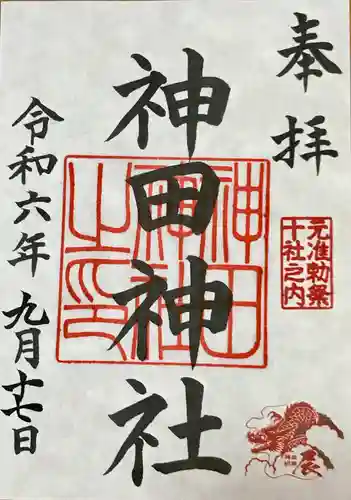 奉拝
元准勅祭
十社之内
辰
神田神社
神田
神社
之印
令和六年九月十七日